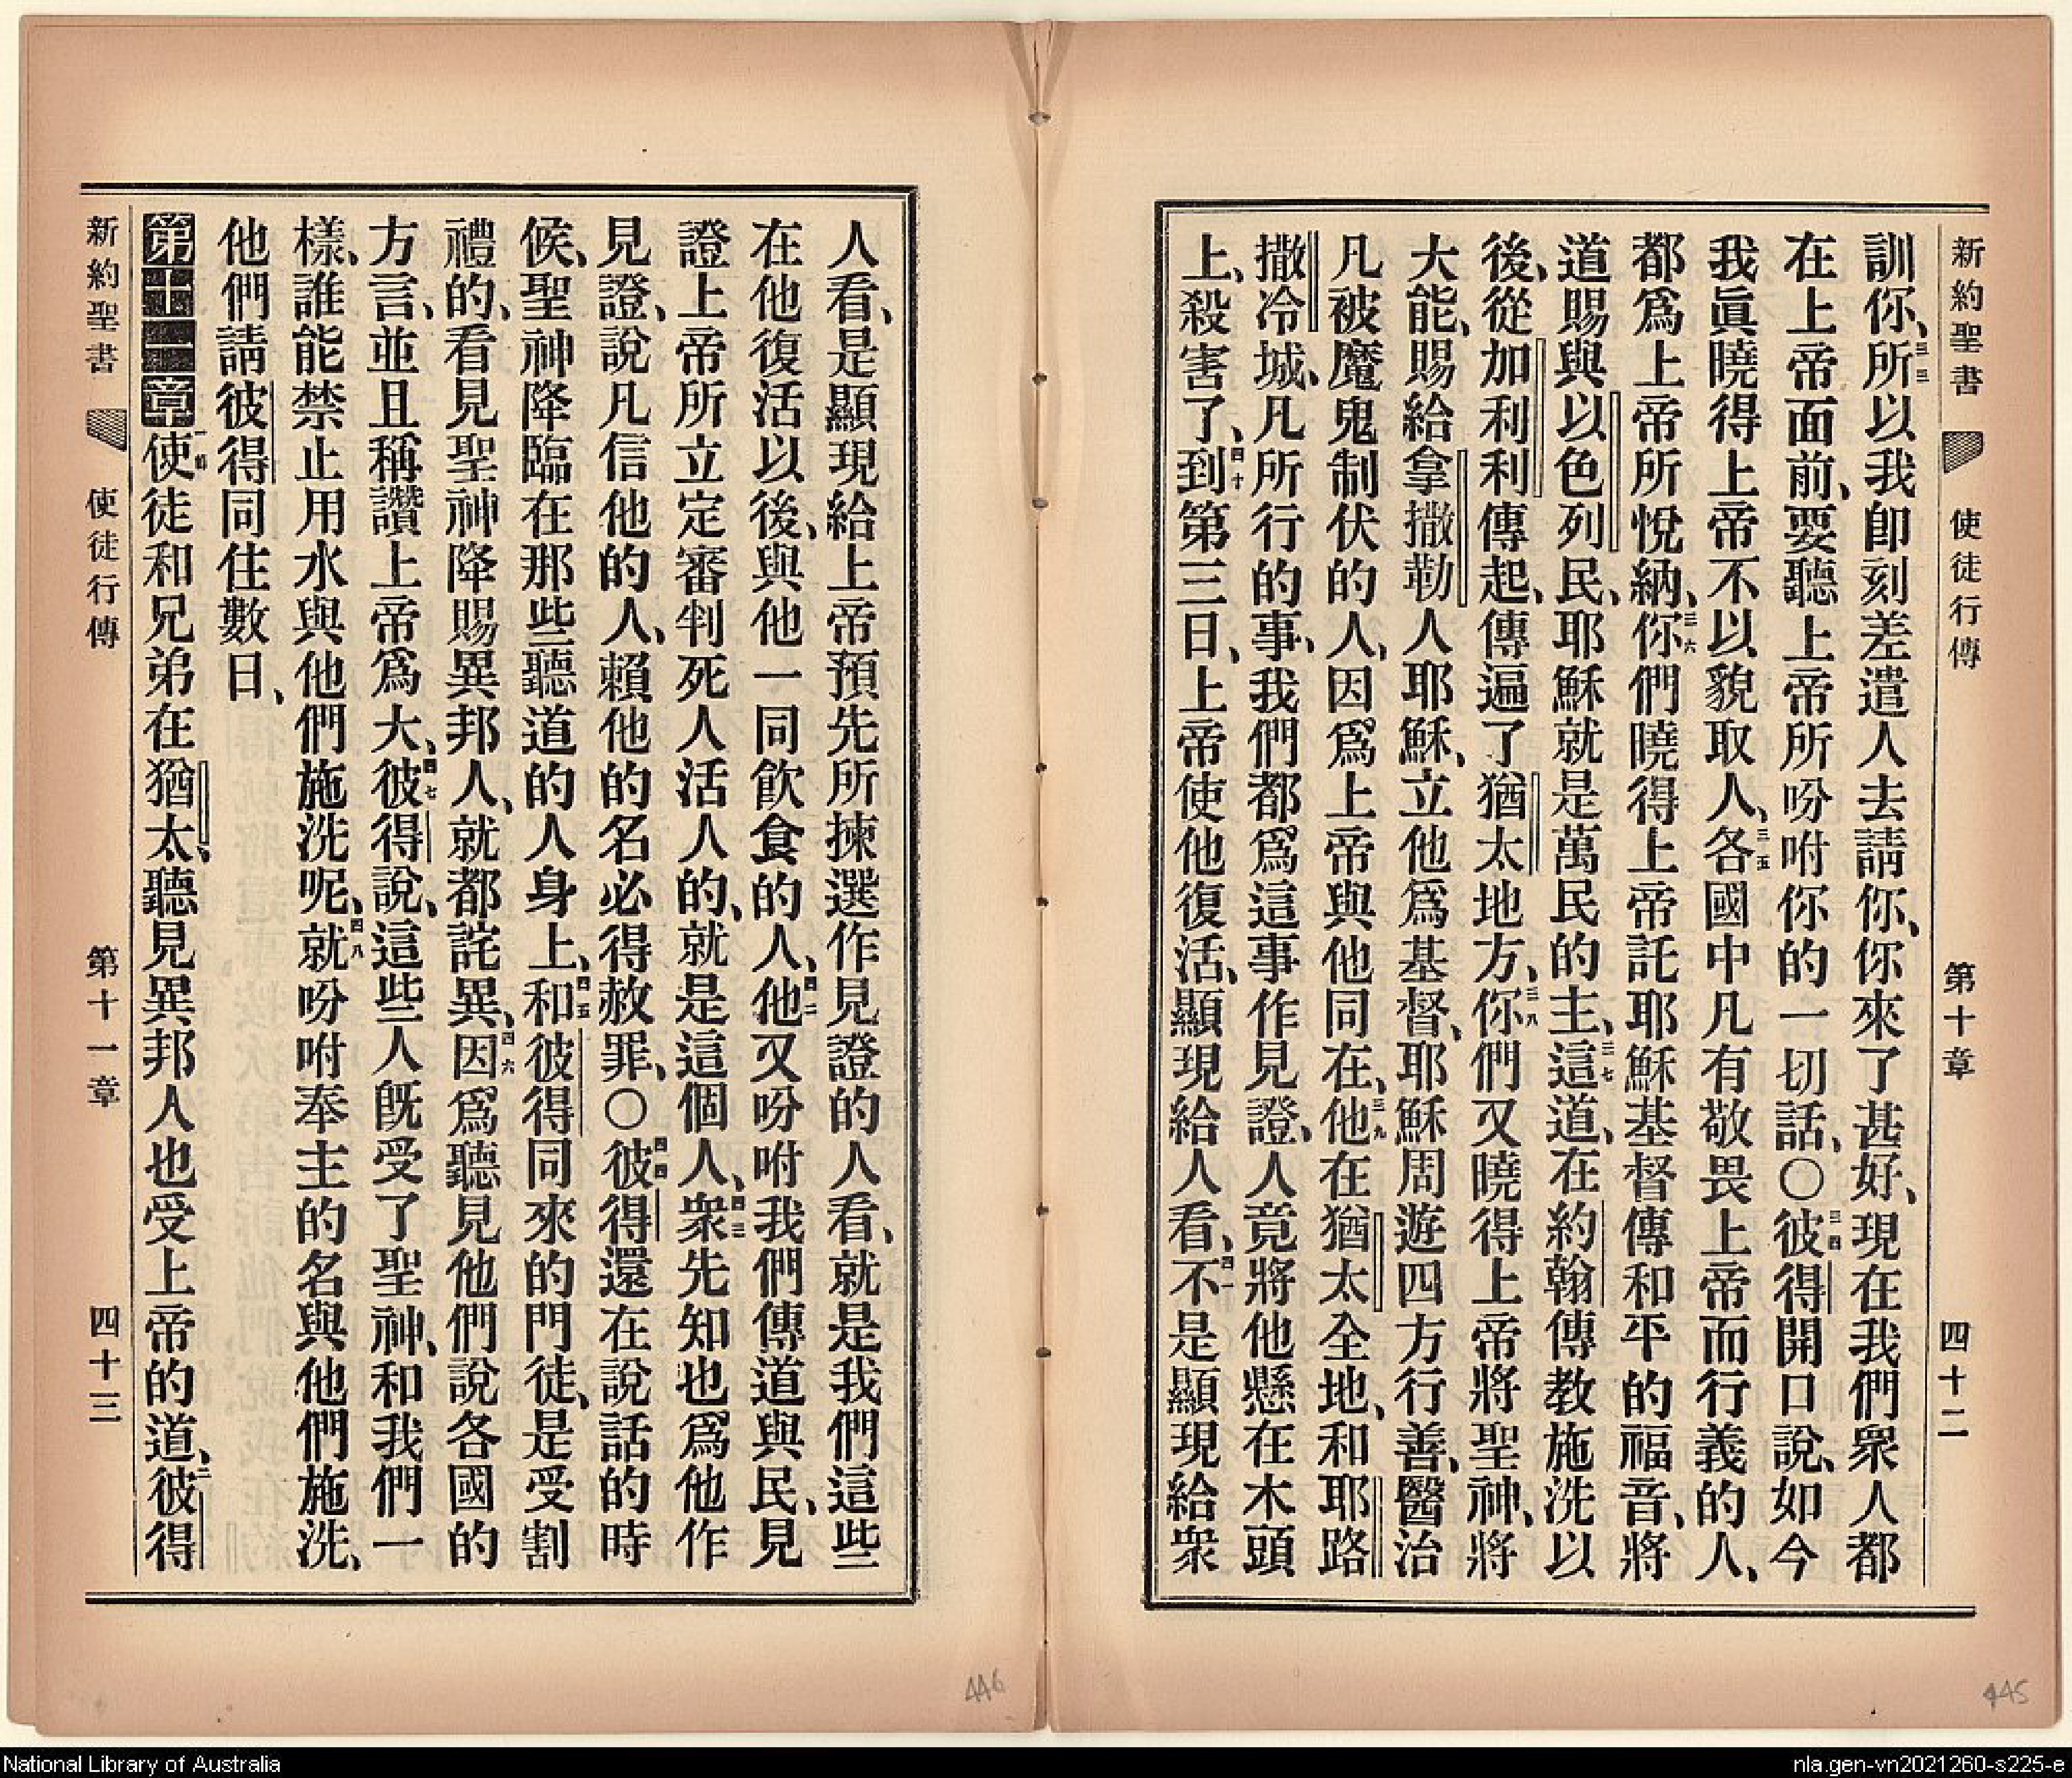 新約聖書 使徒行傳 第十章 四十二
訓你、三三所以我卽刻差遣人去請你、你來了甚好、現在我們衆人都
在上帝面前、要聽上帝所吩咐你的一切話、○三四彼得開口說、如今
我眞曉得上帝不以貌取人、三五各國中凡有敬畏上帝而行義的人、
都爲上帝所悅納、三六你們曉得上帝託耶穌基督傳和平的福音、將
道賜與以色列民、耶穌就是萬民的主、三七這道、在約翰傳教施洗以
後、從加利利傳起、傳遍了猶太地方、三八你們又曉得上帝將聖神、將
大能、賜給拿撒勒人耶穌、立他爲基督、耶穌周遊四方行善、醫治
凡被魔鬼制伏的人、因爲上帝與他同在、三九他在猶太全地、和耶路
撒冷城、凡所行的事、我們都爲這事作見證、人竟將他懸在木頭
上、殺害了、四十到第三日、上帝使他復活、顯現給人看、四一不是顯現給衆
人看、是顯現給上帝預先所揀選作見證的人看、就是我們這些
在他復活以後、與他一同飮食的人、四二他又吩咐我們傳道與民、見
證上帝所立定審判死人活人的、就是這個人、四三衆先知也爲他作
見證、說凡信他的人、賴他的名必得赦罪、○四四彼得還在說話的時
候、聖神降臨在那些聽道的人身上、四五和彼得同來的門徒、是受割
禮的、看見聖神降賜異邦人、就都詫異、四六因爲聽見他們說各國的
方言、並且稱讚上帝爲大、四七彼得說、這些人旣受了聖神、和我們一
樣、誰能禁止用水與他們施洗呢、四八就吩咐奉主的名與他們施洗、
他們請彼得同住數日、
第十一章一節使徒和兄弟在猶太、聽見異邦人也受上帝的道、二彼得
新約聖書 使徒行傳 第十一章 四十三
446
445
National Library of Australia
nla.gen-vn2021260-s225-e